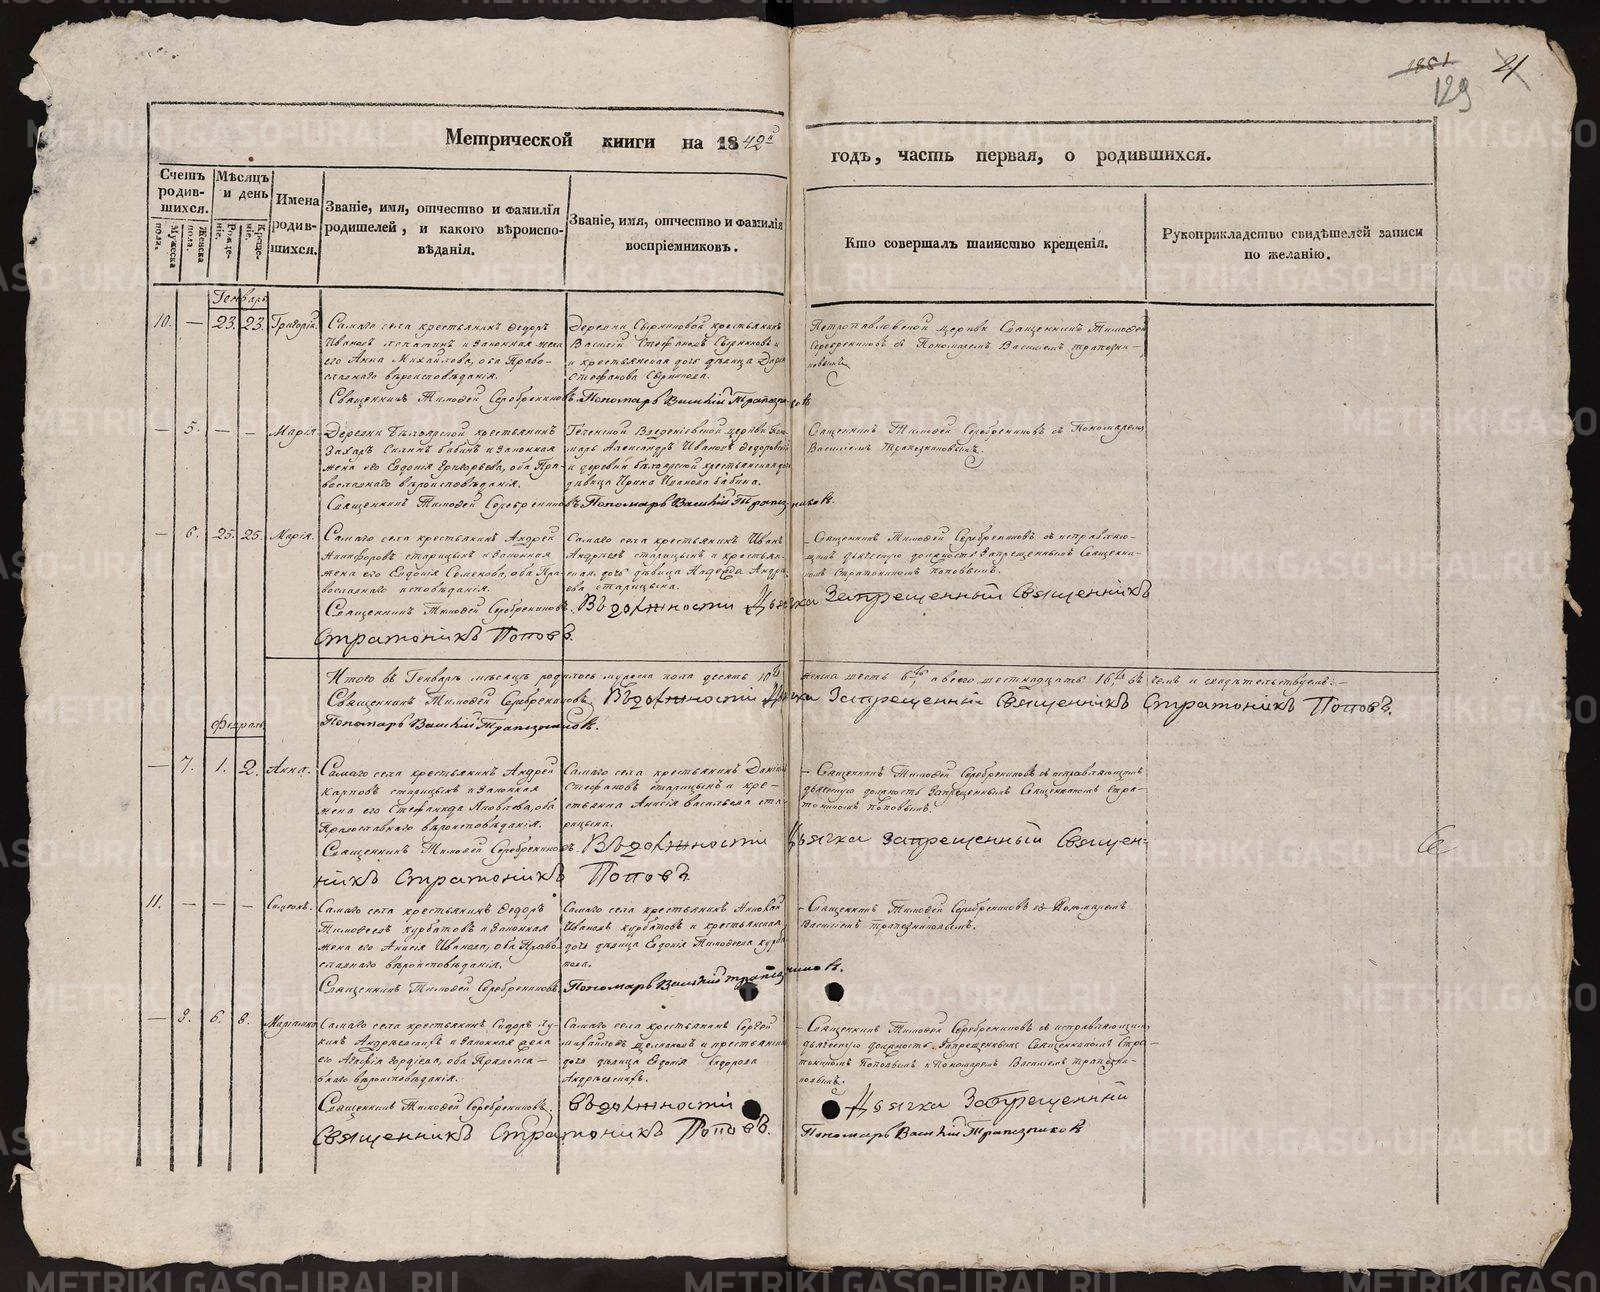 1881
21
129
Метрической книги на 1842й
годъ, часть первая, о родившихся.
Счетъ родившихся.
Мужеска пола.
Женска пола.
Мѣсяцъ и день
Рожденіе.
Крещеніе.
Имена родившихся.
Званіе, имя, отчество и фамилія родителей, и какого вѣроисповѣданія.
Званіе, имя, отчество и фамилія воспріемниковъ.
Кто совершалъ таинство крещенія.
Рукоприкладство свидѣтелей записи по желанію.
Генварь
10. — 23. 23. Григорій.
Самаго села крестьянинъ Ѳедоръ
Ивановъ Лопатинъ и законная жена
его Анна Михайлова, оба Право-
славнаго вѣроисповѣданія.
Деревни Сыриковой крестьянинъ
Василій Стефановъ Сыриковъ и
и крестьянская дочь дѣвица Дарья
Стефанова Сырикова.
Петропавловской церкви Священникъ Тимоѳей
Серебрениковъ съ Пономаремъ Василіемъ Трапезни-
ковымъ
Священникъ Тимоѳей Серебрениковъ. Пономарь Василій Трапезниковъ
— 5. — — Марія.
Деревни Бѣлоярской крестьянинъ
Захаръ Силинъ Бабинъ и законная
жена его Евдокія Григорьева, оба Пра-
вославнаго вѣроисповѣданія.
Теченской Введеніевской церкви Поно-
марь Александръ Ивановъ Ѳедоровской
и деревни Бѣлоярской крестьянская дочь
дѣвица Ирина Иванова Бабина.
Священникъ Тимоѳей Серебрениковъ съ Пономаремъ
Василіемъ Трапезниковымъ.
Священникъ Тимоѳей Серебрениковъ. Пономарь Василій Трапезниковъ.
— 6. 25. 25. Марія.
Самаго села крестьянинъ Андрей
Никифоровъ Старицынъ и законная
жена его Евдокія Семенова, оба Пра-
вославнаго исповѣданія.
Самаго села крестьянинъ Иванъ
Андреевъ Старицынъ и крестьян-
ская дочь дѣвица Надежда Андре-
ева Старицына.
— Священникъ Тимоѳей Серебрениковъ съ исправляю-
щимъ дьяческую должность Запрещеннымъ Священни-
комъ Стратоникомъ Поповымъ.
Священникъ Тимоѳей Серебрениковъ. Въ должности Дьячка Запрещенный Священникъ
Стратоникъ Поповъ.
Итого въ Генварѣ мѣсяцѣ родилось мужеска пола десять 10ть женска шесть 6ть, а всего шестнадцать 16ть въ чемъ и свидѣтельствуемъ: —
Священникъ Тимоѳей Серебрениковъ. Въ должности Дьячка Запрещенный Священникъ Стратоникъ Поповъ.
Пономарь Василій Трапезниковъ.
Февраль
— 7. 1. 2. Анна.
Самаго села крестьянинъ Андрей
Карповъ Старицынъ и законная
жена его Стефанида Яковлева, оба
Православнаго вѣроисповѣданія.
Самаго села крестьянинъ Данiилъ
Стефановъ Старицынъ и кре-
стьянка Анисія Васильева Ста-
рицына.
— Священникъ Тимоѳей Серебрениковъ съ исправляющимъ
дьяческую должность Запрещеннымъ Священникомъ Стра-
тоникомъ Поповымъ.
Священникъ Тимоѳей Серебрениковъ. Въ должности Дьячка Запрещенный Священ-
никъ Стратоникъ Поповъ.
11. — — — Симеонъ.
Самаго села крестьянинъ Ѳедоръ
Тимоѳеевъ Курбатовъ и законная
жена его Анисія Иванова, оба Право-
славнаго вѣроисповѣданія.
Самаго села крестьянинъ Николай
Ивановъ Курбатовъ и крестьянская
дочь дѣвица Евдокія Тимоѳеева Курба-
това.
— Священникъ Тимоѳей Серебрениковъ съ Пономаремъ
Василіемъ Трапезниковымъ.
Священникъ Тимоѳей Серебрениковъ. Пономарь Василій Трапезниковъ.
— 8. 6. 8. Маріамна
Самаго села крестьянинъ Сидоръ Лу-
кинъ Андрѣевскихъ и законная жена
его Агафія Гордѣева, оба Православ-
наго вѣроисповѣданія.
Самаго села крестьянинъ Сергей
Михайловъ и крестьянская
дочь дѣвица Евдокія Сидорова
Андрѣевскихъ.
— Священникъ Тимоѳей Серебрениковъ съ исправляющимъ
дьяческую должность Запрещеннымъ Священникомъ Стра-
тоникомъ Поповымъ и Пономаремъ Василіемъ Трапезни-
ковымъ.
Священникъ Тимоѳей Серебрениковъ. Въ должности Дьячка Запрещенный
Священникъ Стратоникъ Поповъ. Пономарь Василій Трапезниковъ
METRIKI.GASO-URAL.RU